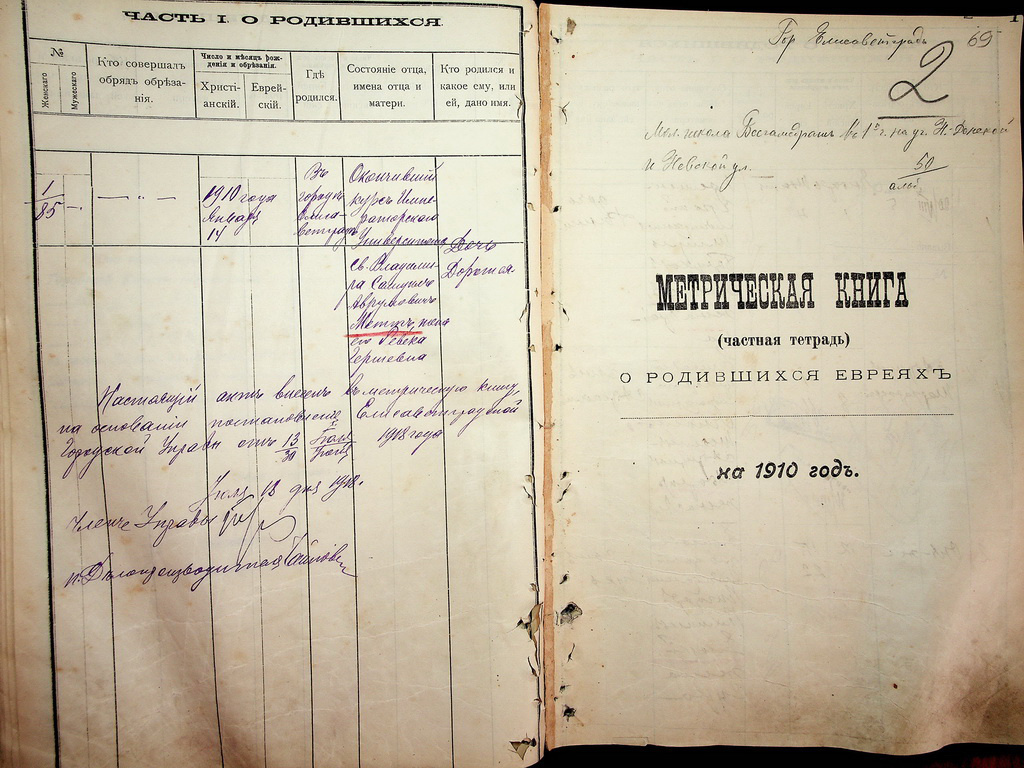 ЧАСТЬ I. О РОДИВШИХСЯ.
№
Женскаго
Мужескаго
Кто совершалъ
обрядъ обрѣза-
нія.
Число и мѣсяцъ рож-
денія и обрѣзанія.
Христі-
анскій.
Еврей-
скій.
Гдѣ
родился.
Состояніе отца,
имена отца и
матери.
Кто родился и
какое ему, или
ей, дано имя.
1/85
1910 года
Января
14
Въ
городѣ
Елиса-
ветградѣ
Окончившій
курсъ Импе-
раторскаго
Университета
Св. Владими-
ра Самуилъ
Аврумовичъ
жена
его Ревека
Гершевна
Дочь
Дорогая
Настоящій актъ внесенъ въ метрическую книгу
на основаніи постановленія Елисаветградской
Городской Управы отъ 13/30 1918 года
Іюля 18 дня 1918.
Членъ Управы
и. Дѣлопроизводителя
69
Гор Елисаветградъ
2
школа № 1й на уг.
и Невской ул.
50
МЕТРИЧЕСКАЯ КНИГА
(частная тетрадь)
О РОДИВШИХСЯ ЕВРЕЯХЪ
на 1910 годъ.